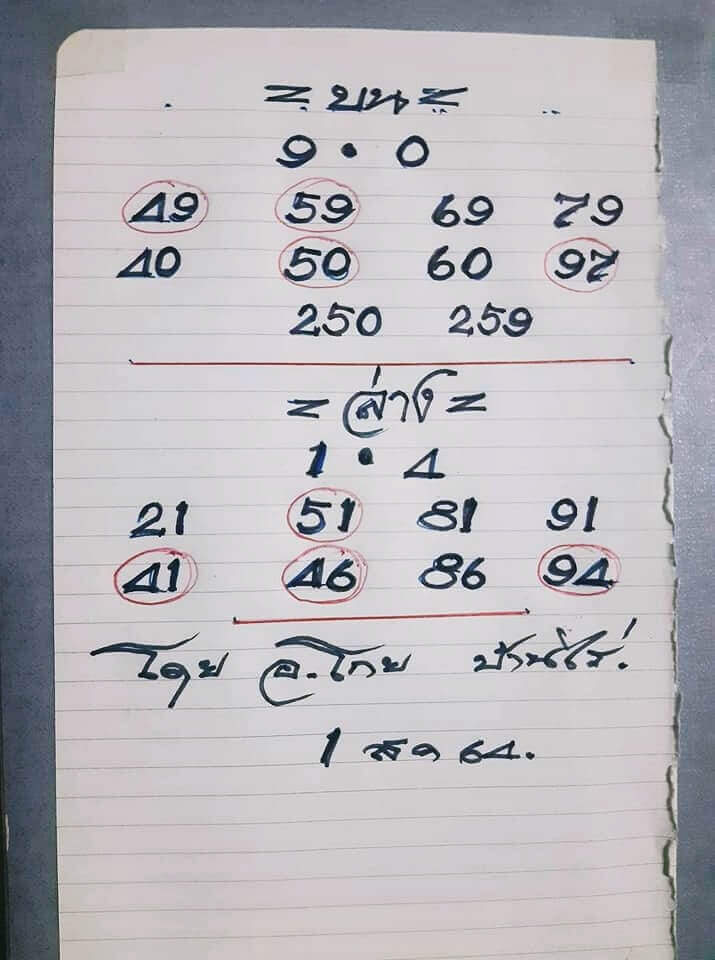 = บน =
9 • 0
49 59 69 79
40 50 60 97
250 259
= ล่าง =
1 • 4
21 51 81 91
41 46 86 94
โดย อ.โกย บ้านไร่.
1 สค 64.